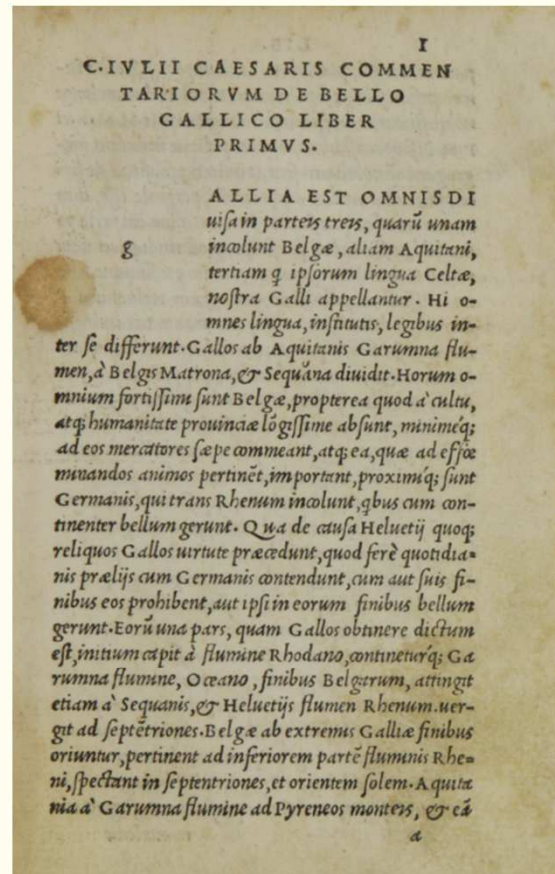 1
C·IVLII CAESARIS COMMEN
TARIORVM DE BELLO
GALLICO LIBER
PRIMVS.
g
ALLIA EST OMNIS DI
uisa in parteis treis, quarũ unam
incolunt Belgæ, aliam Aquitani,
tertiam q ipsorum lingua Celtæ,
nostra Galli appellantur. Hi o-
mnes lingua, institutis, legibus in-
ter se differunt. Gallos ab Aquitanis Garumna flu-
men, à Belgis Matrona, & Sequana diuidit. Horum o-
mnium fortissimi sunt Belgæ, propterea quod à cultu,
atq; humanitate prouinciæ lõgissime absunt, minimeq́;
ad eos mercatores sæpe commeant, atq; ea, quæ ad effœ
minandos animos pertinẽt, important, proximiq́; sunt
Germanis, qui trans Rhenum incolunt, qbus cum con-
tinenter bellum gerunt. Qua de causa Heluetij quoq;
reliquos Gallos uirtute præcedunt, quod ferè quotidia-
nis prælijs cum Germanis contendunt, cum aut suis fi-
nibus eos prohibent, aut ipsi in eorum finibus bellum
gerunt. Eorũ una pars, quam Gallos obtinere dictum
est, initium capit à flumine Rhodano, contineturq́; Ga
rumna flumine, Oceano, finibus Belgarum, attingit
etiam à Sequanis, & Heluetijs flumen Rhenum. uer-
git ad septẽtriones. Belgæ ab extremis Galliæ finibus
oriuntur, pertinent ad inferiorem partẽ fluminis Rhe-
ni, spectant in septentriones, et orientem solem. Aquita
nia à Garumna flumine ad Pyreneos monteis, & eã
a